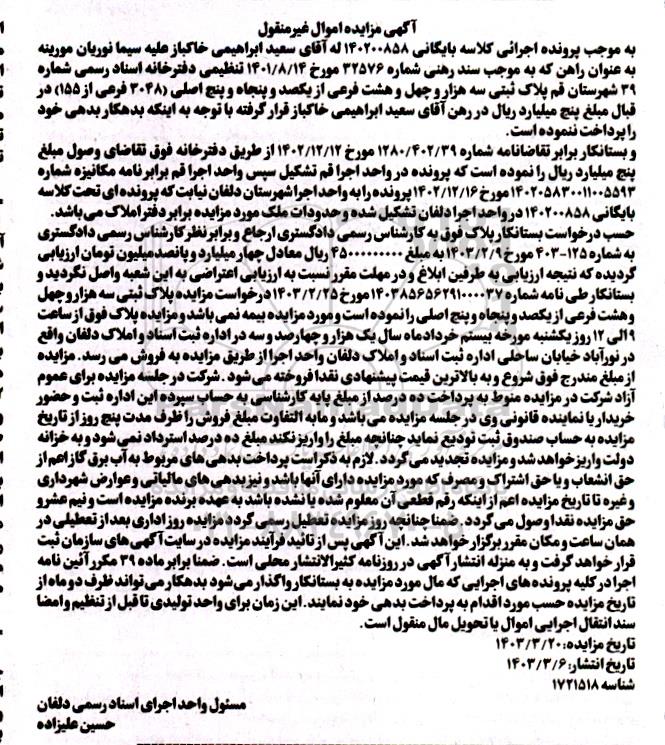 آگهی مزایده اموال غیرمنقول
به موجب پرونده اجرائی کلاسه بایگانی ۱۴۰۲۰۰۸۵۸ له آقای سعید ابراهیمی خاکباز علیه سیما نوریان مورینه
به عنوان راهن که به موجب سند رهنی شماره ۳۲۵۷۶ مورخ ۱۴۰۱/۸/۱۴ تنظیمی دفترخانه اسناد رسمی شماره
۳۹ شهرستان قم پلاک ثبتی سه هزار و چهل و هشت فرعی از یکصد و پنجاه و پنج اصلی (۳۰۴۸ فرعی از ۱۵۵) در
قبال مبلغ پنج میلیارد ریال در رهن آقای سعید ابراهیمی خاکباز قرار گرفته با توجه به اینکه بدهکار بدهی خود
را پرداخت ننموده است.
و بستانکار برابر تقاضانامه شماره ۱۲۸۰/۴۰۲/۳۹ مورخ ۱۴۰۲/۱۲/۱۲ از طریق دفترخانه فوق تقاضای وصول مبلغ
پنج میلیارد ریال را نموده است که پرونده در واحد اجرا قم تشکیل سپس واحد اجرا قم برابر نامه مکانیزه شماره
۱۴۰۲۰۵۸۳۰۰۱۱۰۰۵۵۹۳ مورخ ۱۴۰۲/۱۲/۱۶ پرونده را به واحد اجرا شهرستان دلفان نیابت که پرونده ای تحت کلاسه
بایگانی ۱۴۰۲۰۰۸۵۸ در واحد اجرا دلفان تشکیل شده و حدودات ملک مورد مزایده برابر دفتر املاک می باشد.
حسب درخواست بستانکار پلاک فوق به کارشناس رسمی دادگستری ارجاع و برابر نظر کارشناس رسمی دادگستری
به شماره ۱۲۵-۴۰۳ مورخ ۱۴۰۳/۲/۹ به مبلغ ۴۵۰۰۰۰۰۰۰۰۰ ریال معادل چهار میلیارد و پانصد میلیون تومان ارزیابی
گردیده که نتیجه ارزیابی به طرفین ابلاغ و در مهلت مقرر نسبت به ارزیابی اعتراضی به این شعبه واصل نگردید و
بستانکار طی نامه شماره ۱۴۰۳۸۵۶۵۶۲۹۱۰۰۰۰۳۷ مورخ ۱۴۰۳/۲/۲۵ درخواست مزایده پلاک ثبتی سه هزار و چهل
و هشت فرعی از یکصد و پنجاه و پنج اصلی را نموده است و مورد مزایده بیمه نمی باشد و مزایده پلاک فوق از ساعت
۹ الی ۱۲ روز یکشنبه مورخه بیستم خردادماه سال یک هزار و چهارصد و سه در اداره ثبت اسناد و املاک دلفان واقع
در نورآباد خیابان ساحلی اداره ثبت اسناد و املاک دلفان واحد اجرا از طریق مزایده به فروش می رسد. مزایده
از مبلغ مندرج فوق شروع و به بالاترین قیمت پیشنهادی نقدا فروخته می شود. شرکت در جلسه مزایده برای عموم
آزاد شرکت در مزایده منوط به پرداخت ده درصد از مبلغ پایه کارشناسی به حساب سپرده این اداره ثبت و حضور
خریدار یا نماینده قانونی وی در جلسه مزایده می باشد و مابه التفاوت مبلغ فروش را ظرف مدت پنج روز از تاریخ
مزایده به حساب صندوق ثبت تودیع نماید چنانچه مبلغ را واریز نکند مبلغ ده درصد استرداد نمی شود و به خزانه
دولت واریز خواهد شد و مزایده تجدید می گردد. لازم به ذکر است پرداخت بدهی های مربوط به آب برق گاز اعم از
حق انشعاب و یا حق اشتراک و مصرف که مورد مزایده دارای آنها باشد و نیز بدهی های مالیاتی و عوارض شهرداری
و غیره تا تاریخ مزایده اعم از اینکه رقم قطعی آن معلوم شده یا نشده باشد به عهده برنده مزایده است و نیم عشر و
حق مزایده نقدا وصول می گردد. ضمنا چنانچه روز مزایده تعطیل رسمی گردد مزایده روز اداری بعد از تعطیلی در
همان ساعت و مکان مقرر برگزار خواهد شد. این آگهی پس از تائید فرآیند مزایده در سایت آگهی های سازمان ثبت
قرار خواهد گرفت و به منزله انتشار آگهی در روزنامه کثیرالانتشار محلی است. ضمنا برابر ماده ۳۹ مکرر آئین نامه
اجرا در کلیه پرونده های اجرایی که مال مورد مزایده به بستانکار واگذار می شود بدهکار می تواند ظرف دو ماه از
تاریخ مزایده حسب مورد اقدام به پرداخت بدهی خود نمایند. این زمان برای واحد تولیدی تا قبل از تنظیم و امضا
سند انتقال اجرایی اموال یا تحویل مال منقول است.
تاریخ مزایده: ۱۴۰۳/۳/۲۰
تاریخ انتشار: ۱۴۰۳/۳/۶
شناسه ۱۷۲۱۵۱۸
مسئول واحد اجرای اسناد رسمی دلفان
حسین علیزاده